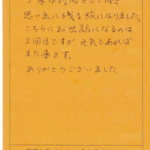 思い出に残る旅になりました。
こちらにお世話になるのは
2回目ですが、元気であれば
また来ます。
ありがとうございました